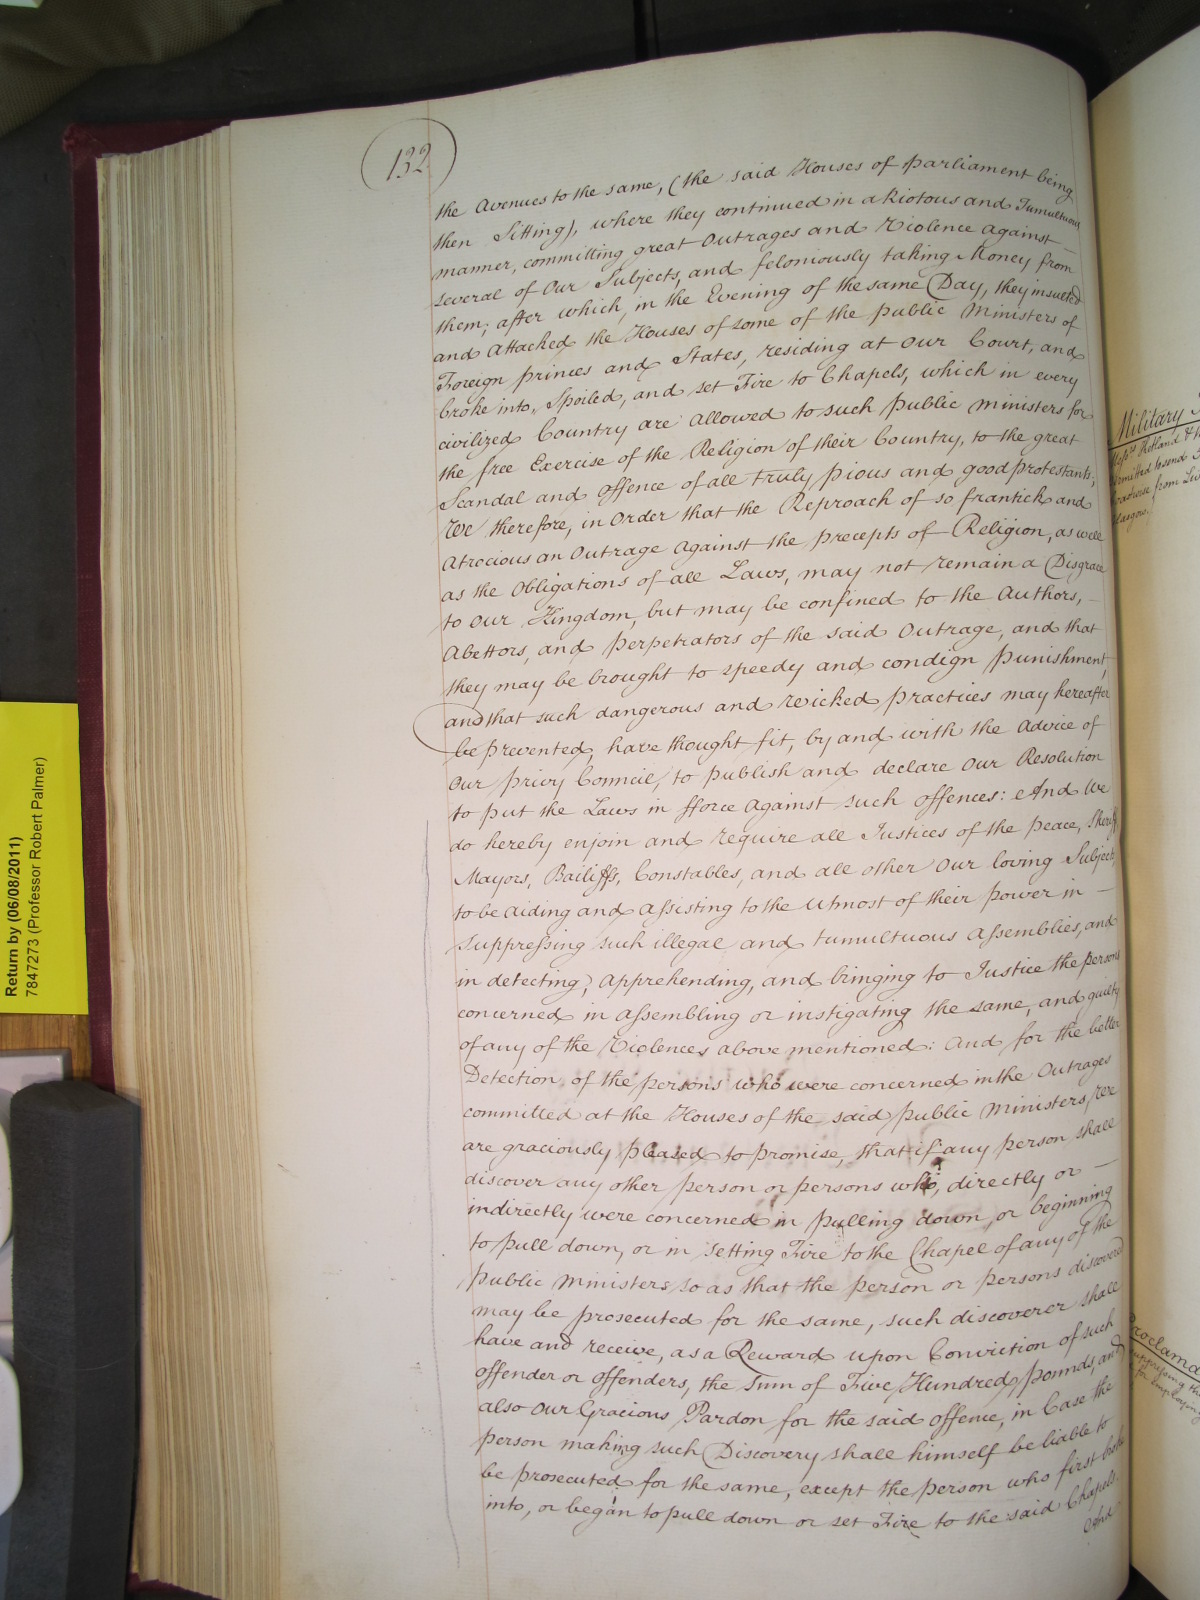 132
the Avenues to the same, (the said Houses of Parliament being
then Sitting), where they continued in a Riotous and Tumultuous
manner, committing great Outrages and Violence against
several of Our Subjects, and feloniously taking Money from
them; after which, in the Evening of the same Day, they insulted
and Attacked the Houses of some of the public Ministers of
Foreign Princes and States, residing at Our Court, and
broke into, Spoiled, and set Fire to Chapels, which in every
civilized Country are allowed to such Public Ministers for
the free Exercise of the Religion of their Country, to the great
Scandal and Offence of all truly pious and good protestants;
We therefore, in Order that the Reproach of so frantick and
Atrocious an Outrage against the precepts of Religion, as well
as the Obligations of all Laws, may not remain a Disgrace
to our Kingdom, but may be confined to the Authors,
Abettors, and Perpetrators of the said Outrage, and that
they may be brought to speedy and condign Punishment,
and that such dangerous and wicked practices may hereafter
be prevented, have thought fit, by and with the Advice of
Our Privy Council, to publish and declare Our Resolution
to put the Laws in fforce against such offences: And We
do hereby enjoin and require all Justices of the Peace, Sheriffs
Mayors, Bailiffs, Constables, and all other Our loving Subjects,
to be aiding and assisting to the Utmost of their power in
suppressing such illegal and tumultuous Assemblies, and
in detecting, apprehending, and bringing to Justice the persons
concerned in assembling or instigating the same, and guilty
of any of the Violences above mentioned: And for the better
Detection of the persons who were concerned in the Outrages
committed at the Houses of the said public Ministers, We
are graciously pleased to promise, that if any person shall
discover any other person or persons who, directly or
indirectly were concerned in pulling down, or beginning
to pull down, or in setting Fire to the Chapel of any of the
Public Ministers so as that the person or persons discovered
may be prosecuted for the same, such discoverer shall
have and receive, as a Reward upon Conviction of such
offender or offenders, the Sum of Five Hundred pounds, and
also Our Gracious Pardon for the said offence, in Case the
person making such Discovery shall himself be liable to
be prosecuted for the same, except the person who first broke
into, or began to pull down or set Fire to the said Chapels.
And
Return by (06/08/2011)
7847273 (Professor Robert Palmer)
Military
Glasgow.